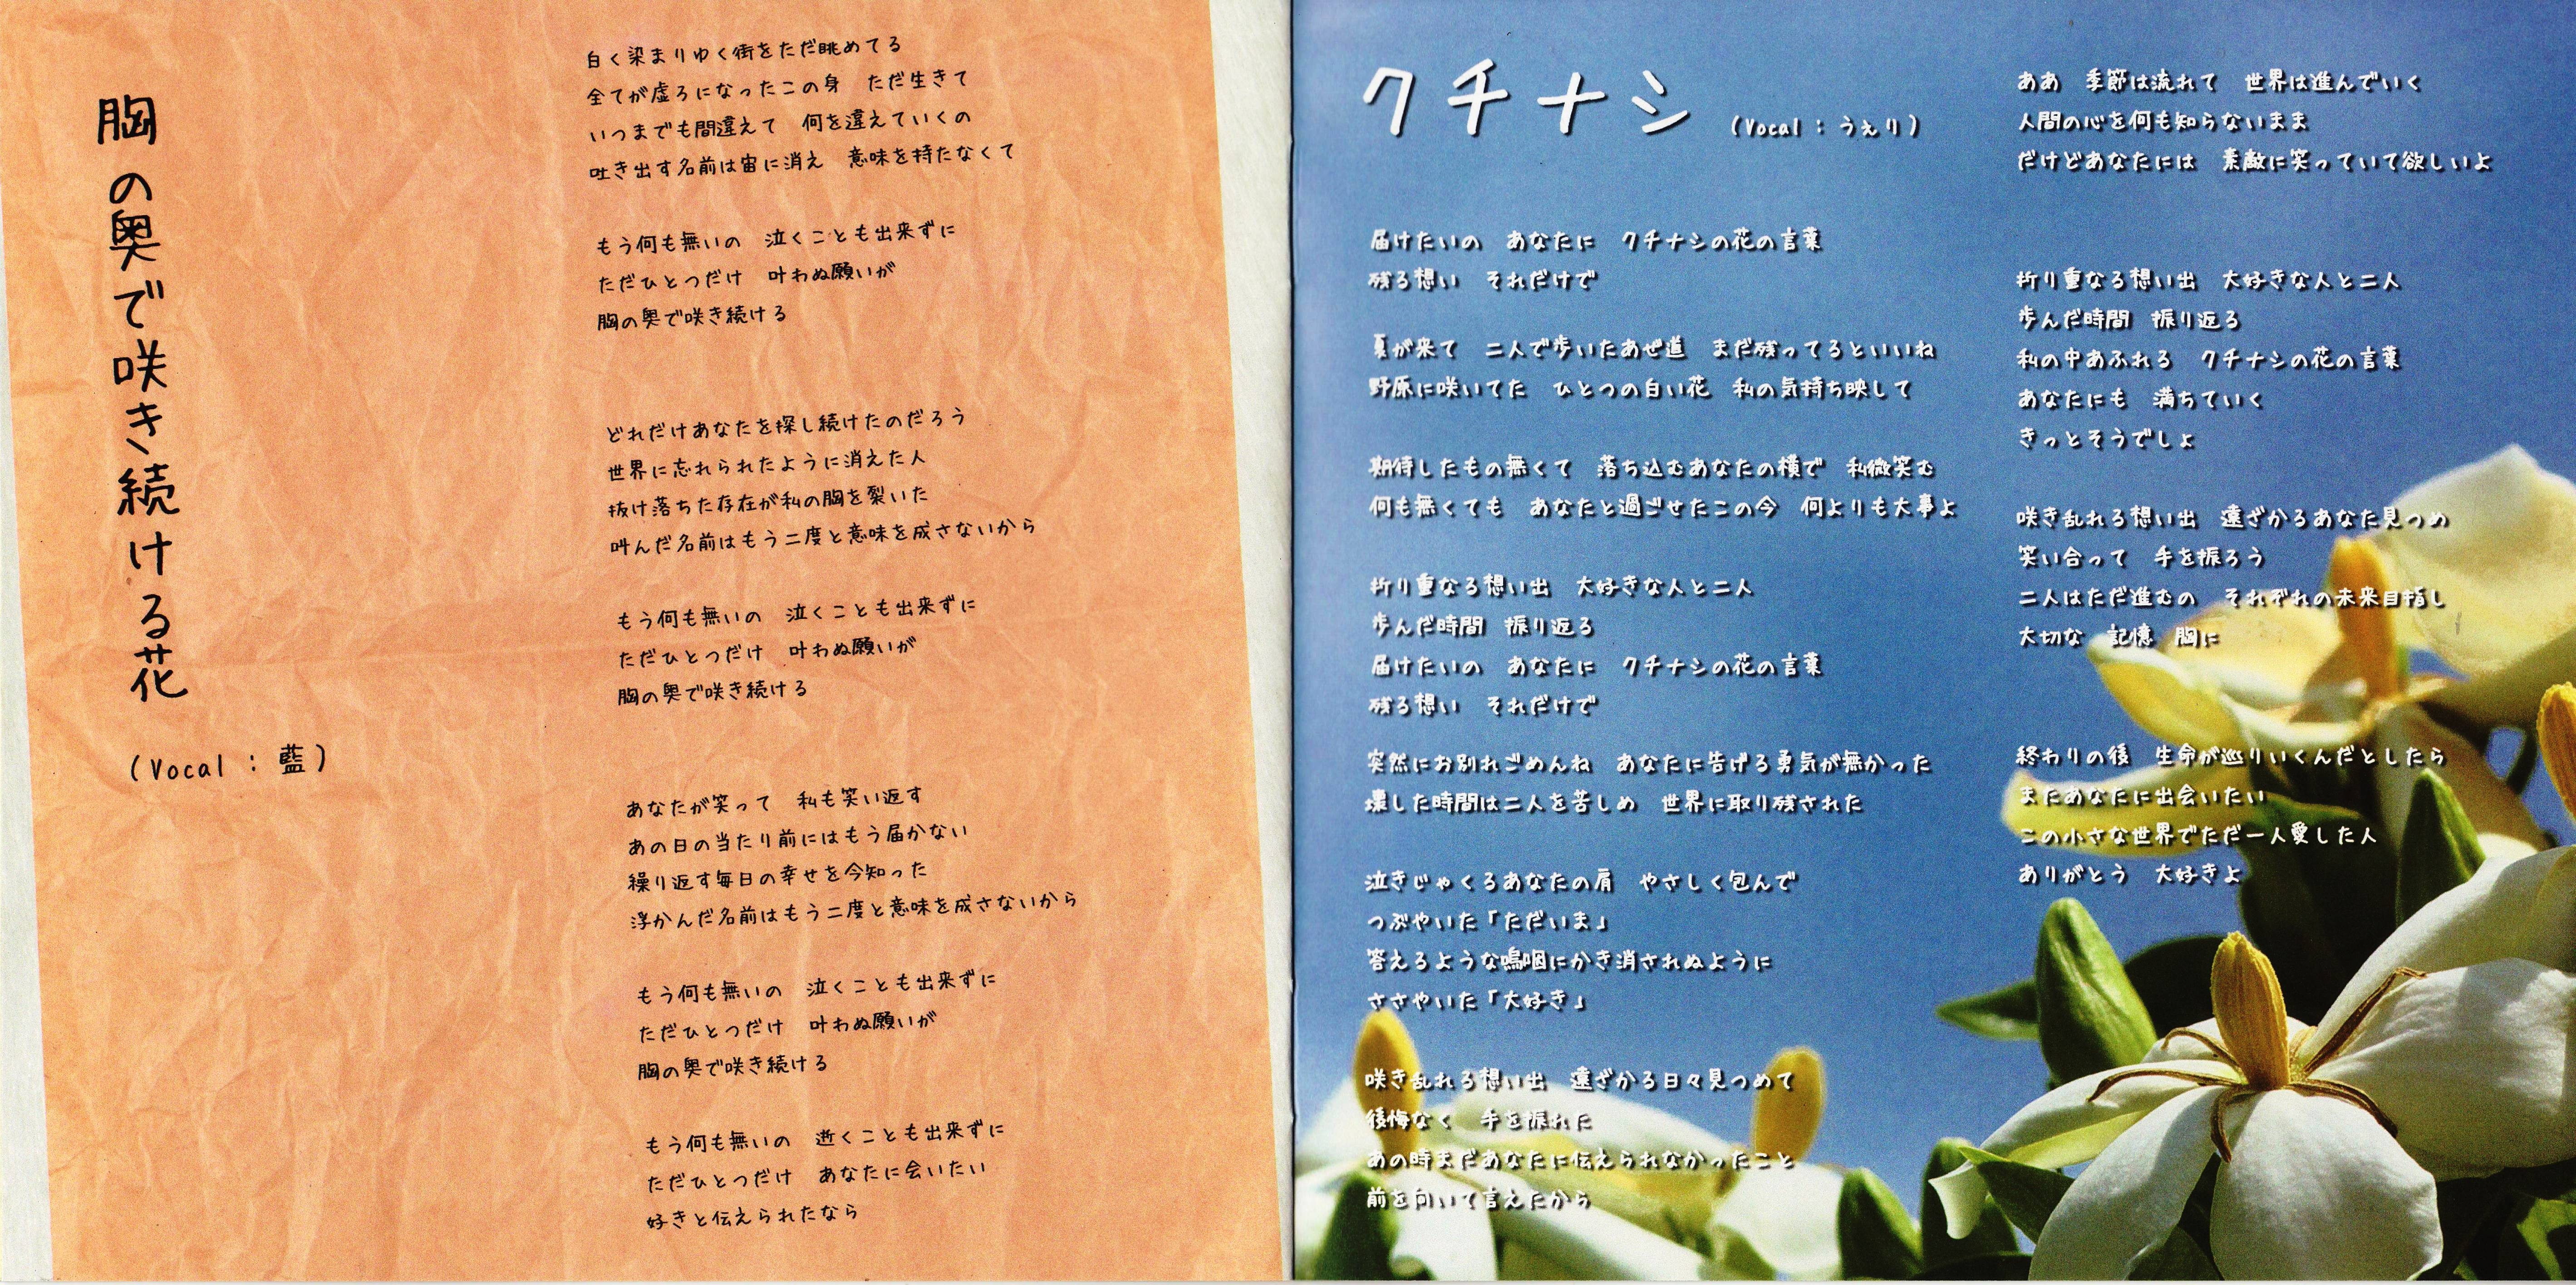 胸の奥で咲き続ける花
(Vocal : 藍)
白く染まりゆく街をただ眺めてる
全てが虚ろになったこの身　ただ生きて
いつまでも間違えて　何を違えていくの
吐き出す名前は宙に消え　意味を持たなくて
もう何も無いの　泣くことも出来ずに
ただひとつだけ　叶わぬ願いが
胸の奥で咲き続ける
どれだけあなたを探し続けたのだろう
世界に忘れられたように消えた人
抜け落ちた存在が私の胸を裂いた
叫んだ名前はもう二度と意味を成さないから
もう何も無いの　泣くことも出来ずに
ただひとつだけ　叶わぬ願いが
胸の奥で咲き続ける
あなたが笑って　私も笑い返す
あの日の当たり前にはもう届かない
繰り返す毎日の幸せを今知った
浮かんだ名前はもう二度と意味を成さないから
もう何も無いの　泣くことも出来ずに
ただひとつだけ　叶わぬ願いが
胸の奥で咲き続ける
もう何も無いの　逝くことも出来ずに
ただひとつだけ　あなたに会いたい
好きと伝えられたなら
クチナシ (Vocal : うぇり)
届けたいの　あなたに　クチナシの花の言葉
残る想い　それだけで
夏が来て　二人で歩いたあぜ道　まだ残ってるといいね
野原に咲いてた　ひとつの白い花　私の気持ち映して
期待したもの無くて　落ち込むあなたの横で　私微笑む
何も無くても　あなたと過ごせたこの今　何よりも大事よ
折り重なる想い出　大好きな人と二人
歩んだ時間　振り返る
届けたいの　あなたに　クチナシの花の言葉
残る想い　それだけで
突然にお別れごめんね　あなたに告げる勇気が無かった
壊した時間は二人を苦しめ　世界に取り残された
泣きじゃくるあなたの肩　やさしく包んで
つぶやいた「ただいま」
答えるような嗚咽にかき消されぬように
ささやいた「大好き」
咲き乱れる想い出　遠ざかる日々見つめて
後悔なく　手を振れた
あの時まだあなたに伝えられなかったこと
前を向いて言えたから
ああ　季節は流れて　世界は進んでいく
人間の心を何も知らないまま
だけどあなたには　素敵に笑っていて欲しいよ
折り重なる想い出　大好きな人と二人
歩んだ時間　振り返る
私の中あふれる　クチナシの花の言葉
あなたにも　満ちていく
きっとそうでしょ
咲き乱れる想い出　遠ざかるあなた見つめ
笑い合って　手を振ろう
二人はただ進むの　それぞれの未来目指し
大切な　記憶　胸に
終わりの後　生命が巡りいくんだとしたら
またあなたに出会いたい
この小さな世界でただ一人愛した人
ありがとう　大好きよ